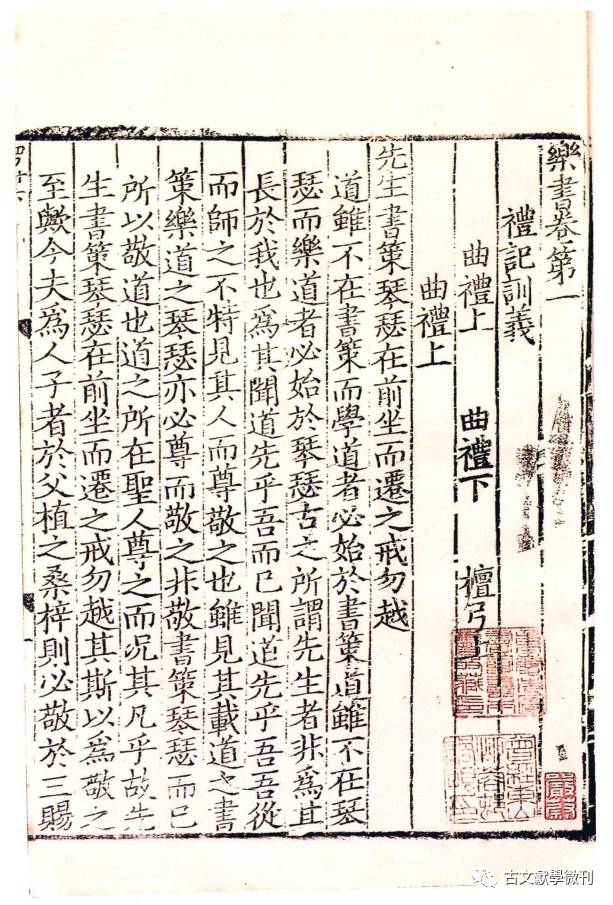 樂書卷第一
禮記訓義
曲禮上　曲禮下　檀弓
曲禮上
先生書策琴瑟在前坐而遷之戒勿越
道雖不在書策而學道者必始於書策道雖不在琴
瑟而樂道者必始於琴瑟古之所謂先生者非爲其
長於我也爲其聞道先乎吾而已聞道先乎吾吾從
而師之不特見其人而尊敬之也雖見其載道之書
策樂道之琴瑟亦必尊而敬之非敬書策琴瑟而已
所以敬道也道之所在聖人尊之而况其凡乎故先
生書策琴瑟在前坐而遷之戒勿越其斯以爲敬之
至歟今夫爲人子者於父植之桑梓則必敬於三賜
古文獻學微刊